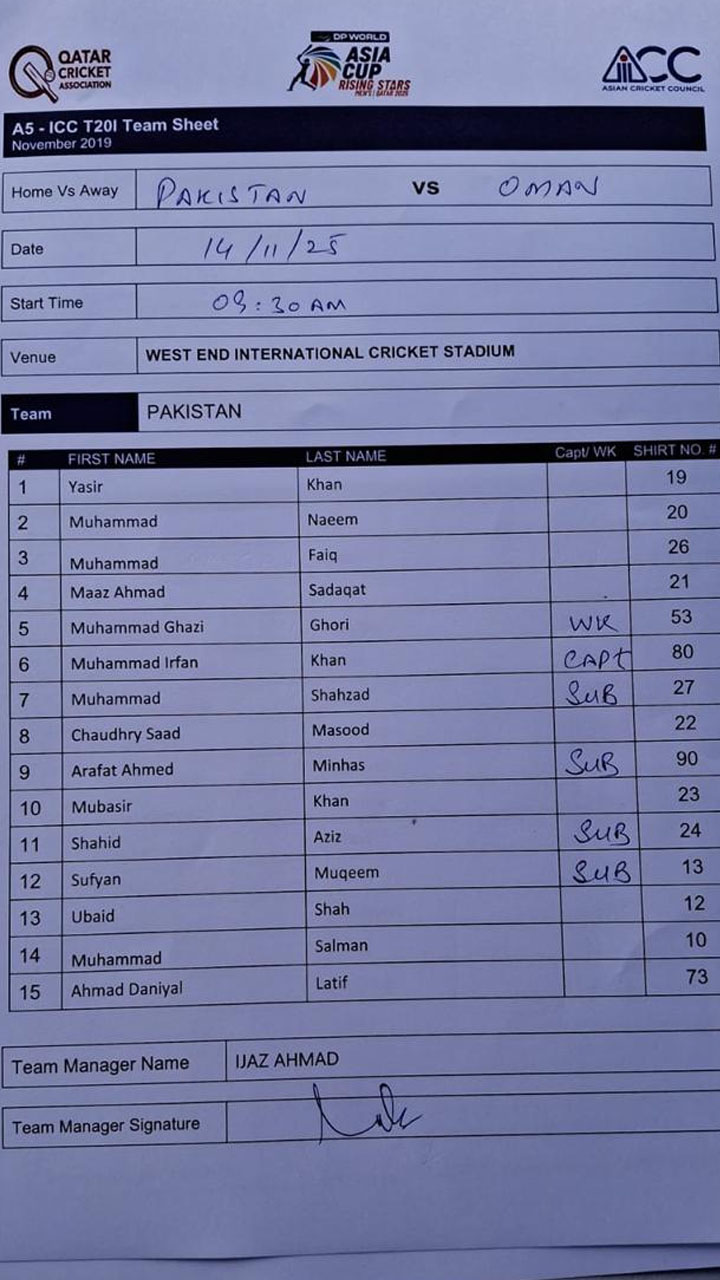 QATAR
CRICKET
ASSOCIATION
DP WORLD
ASIA
CUP
RISING STARS
MEN'S | QATAR 2025
ACC
ASIAN CRICKET COUNCIL
A5 - ICC T20I Team Sheet
November 2019
Home Vs Away PAKISTAN VS OMAN
Date 14/11/25
Start Time 09:30 AM
Venue WEST END INTERNATIONAL CRICKET STADIUM
Team PAKISTAN
# FIRST NAME LAST NAME Capt/ WK SHIRT NO. #
1 Yasir Khan 19
2 Muhammad Naeem 20
3 Muhammad Faiq 26
4 Maaz Ahmad Sadaqat 21
5 Muhammad Ghazi Ghori WK 53
6 Muhammad Irfan Khan CAPt 80
7 Muhammad Shahzad SUB 27
8 Chaudhry Saad Masood 22
9 Arafat Ahmed Minhas SUB 90
10 Mubasir Khan 23
11 Shahid Aziz SUB 24
12 Sufyan Muqeem SUB 13
13 Ubaid Shah 12
14 Muhammad Salman 10
15 Ahmad Daniyal Latif 73
Team Manager Name IJAZ AHMAD
Team Manager Signature